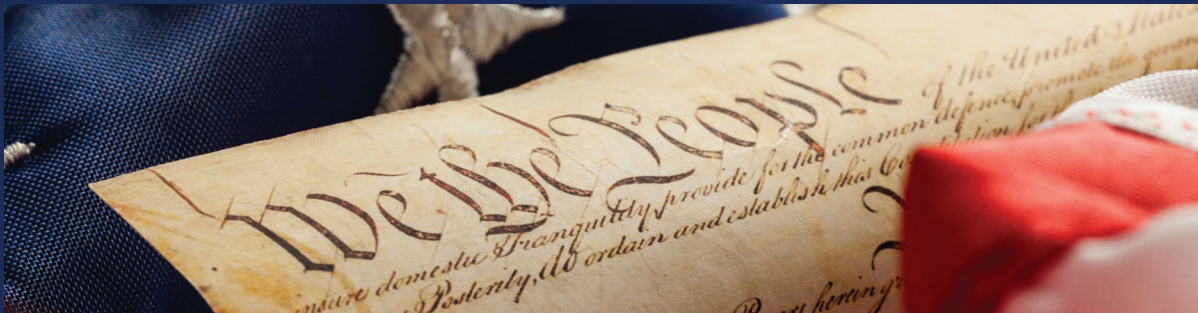 We the People of the United States
insure domestic Tranquility, provide for the common defence, promote the
Posterity, do ordain and establish this
herein